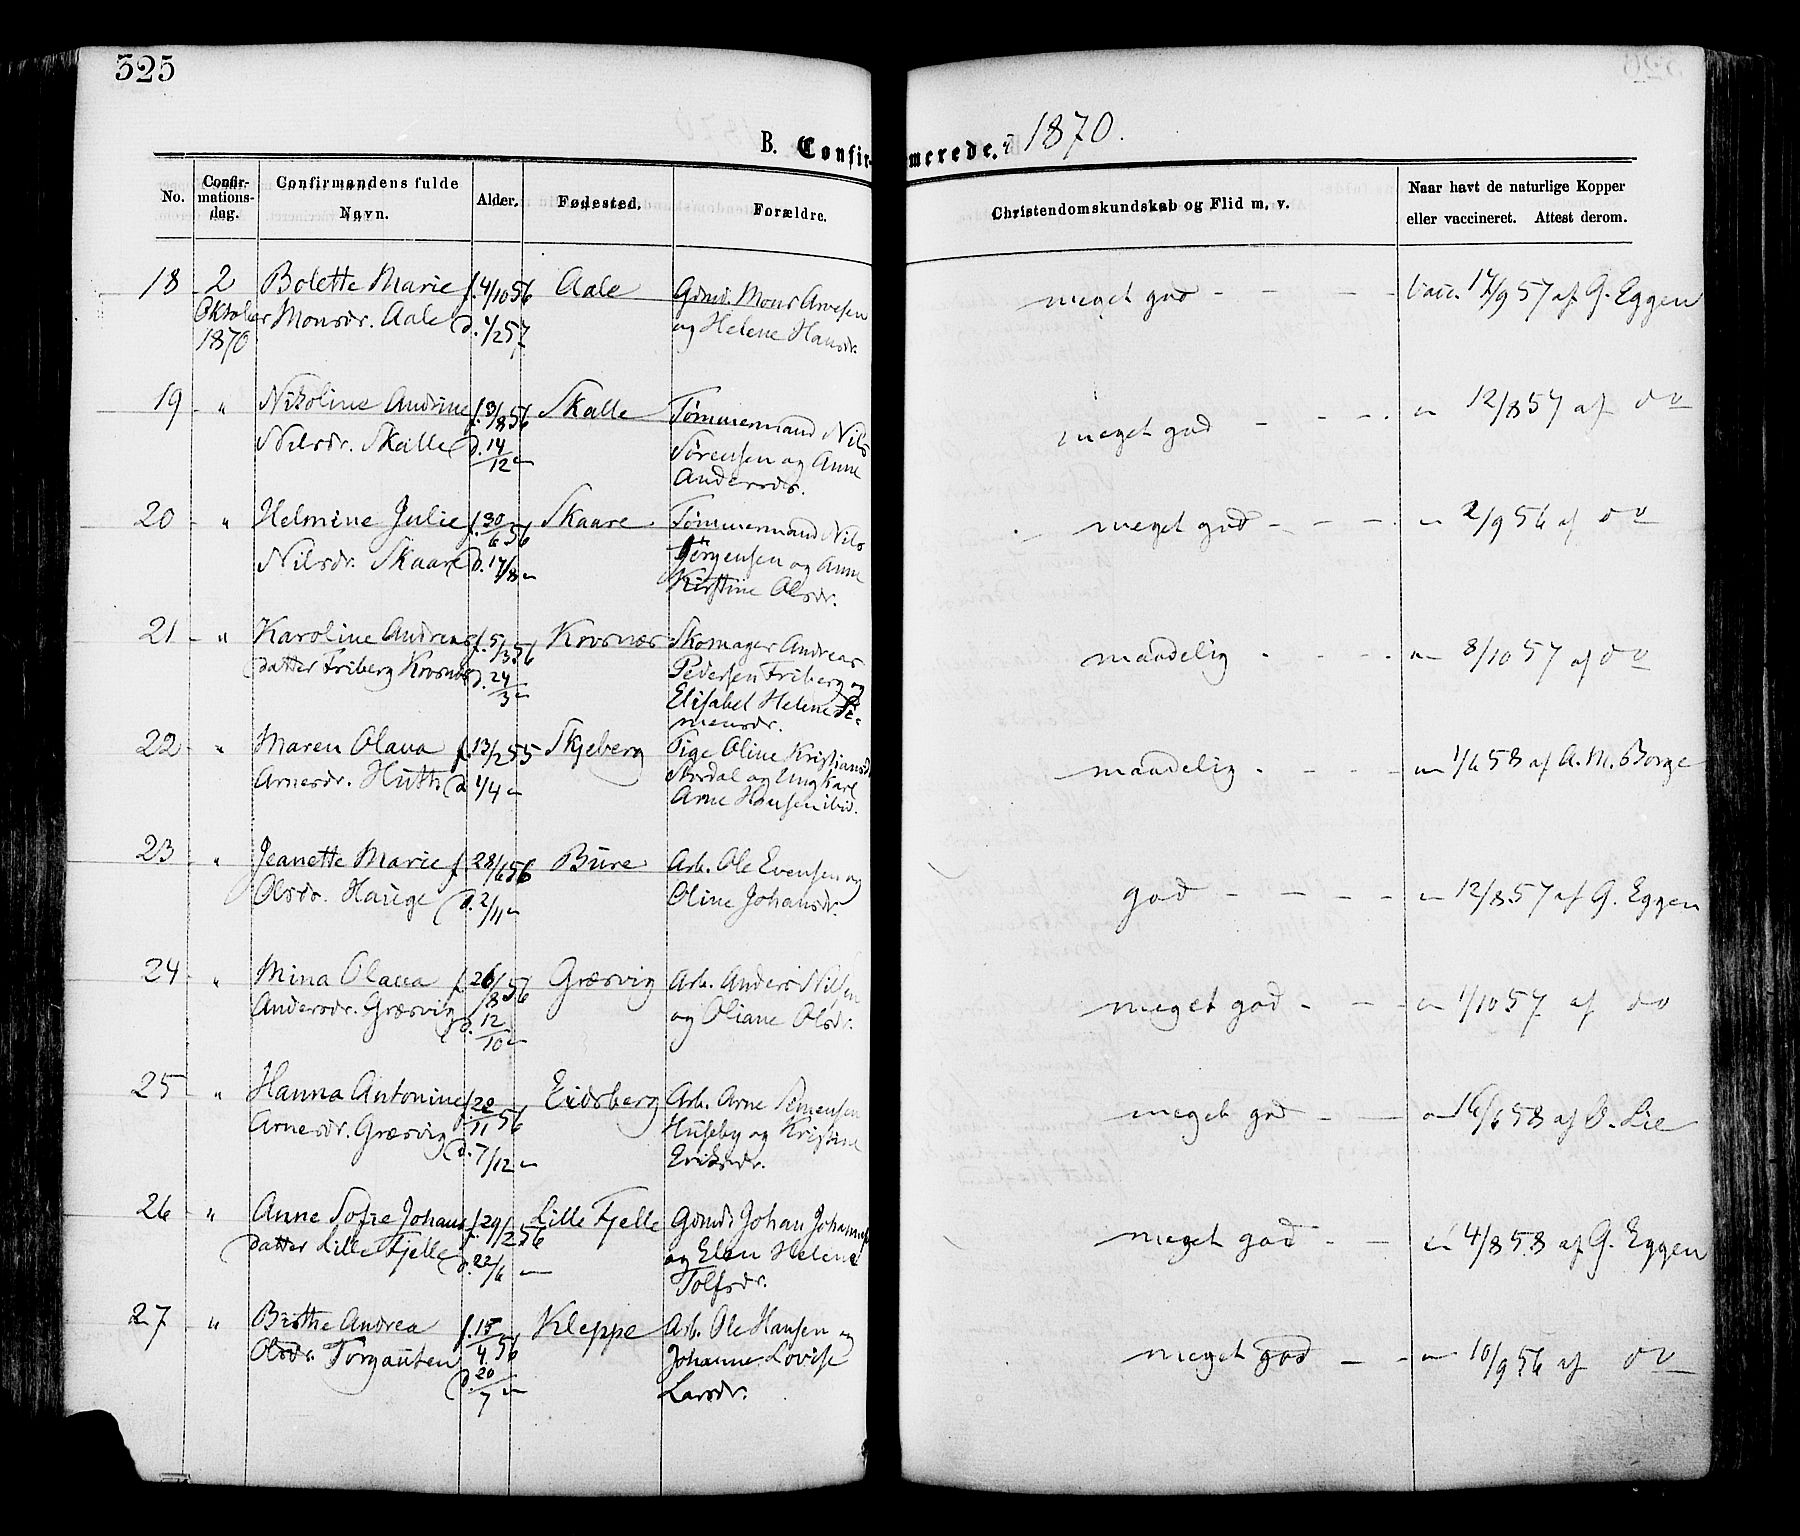 325
B. Confirmerede. i 1870.
No. Confirmationsdag. Confirmandens fulde Navn. Alder. Fødested. Forældre. Christendomskundskab og Flid m. v. Naar havt de naturlige Kopper eller vaccineret. Attest derom.
18 2 Bolette Marie f. 4/10 56 Aale Gdmd. Mons Arvesen meget god - - - - vacc. 17/9 57 af G. Eggen
Oktober Monsdr. Aale d. 1/2 57 og Helene Hansdr.
1870
19 - " Nikoline Andrine f. 3/8 56 Skalle Tømmermand Nils meget god - - - - " 12/8 57 af do
Nilsdr. Skalle d. 14/12 " Sørensen og Anne
Andersdr.
20 - " Helmine Julie f. 30/6 56 Skaare Tømmermand Nils meget god - - - - " 2/9 56 af do
Nilsdr. Skaare d. 17/8 " Jörgensen og Anne
Kirstine Olsdr.
21 - " Karoline Andreas f. 5/3 56 Krosnæs Skomager Andreas maadelig - - - - " 8/10 57 af do
datter Friberg Krosnæs d. 24/3 " Pedersen Friberg og
Elisabet Helene Si-
mensdr.
22 - " Maren Olava f. 13/2 55 Skjeberg Pige Oline Kristiansd. maadelig - - - - " 1/6 58 af A. M. Borge
Arnesdr. Hutt d. 1/4 " og Ungkarl
Arne Hansen ibid.
23 - " Jeanette Marie f. 28/6 56 Bure Arb. Ole Evensen og god - - - - " 12/8 57 af G. Eggen
Olsdr. Hauge d. 2/11 " Oline Johansdr.
24 - " Mina Olava f. 26/8 56 Græsvig Arb. Anders Nilsen meget god - - - " 1/10 57 af do
Andersdr. Græsvig d. 12/10 " og Oliane Olsdr.
25 - " Hanna Antonine f. 22/11 56 Eidsberg Arb. Arne Simensen meget god - - " 16/6 58 af O. Lie
Arnesdr. Græsvig d. 7/12 " Huseby og Kristine
Eriksdr.
26 - " Anne Sofie Johans f. 29/2 56 Lille Fjelle Gdmd. Johan Johannes meget god - - " 4/8 58 af G. Eggen
datter Lille Fjelle d. 22/6 " og Elen Helene
Tolfsdr.
27 - " Birthe Andrea f. 15/4 56 Kleppe Arb. Ole Hansen og meget god - - " 10/9 56 af do
Olsdr. Torgauten d. 20/7 " Johanne Lovise
Larsdr.